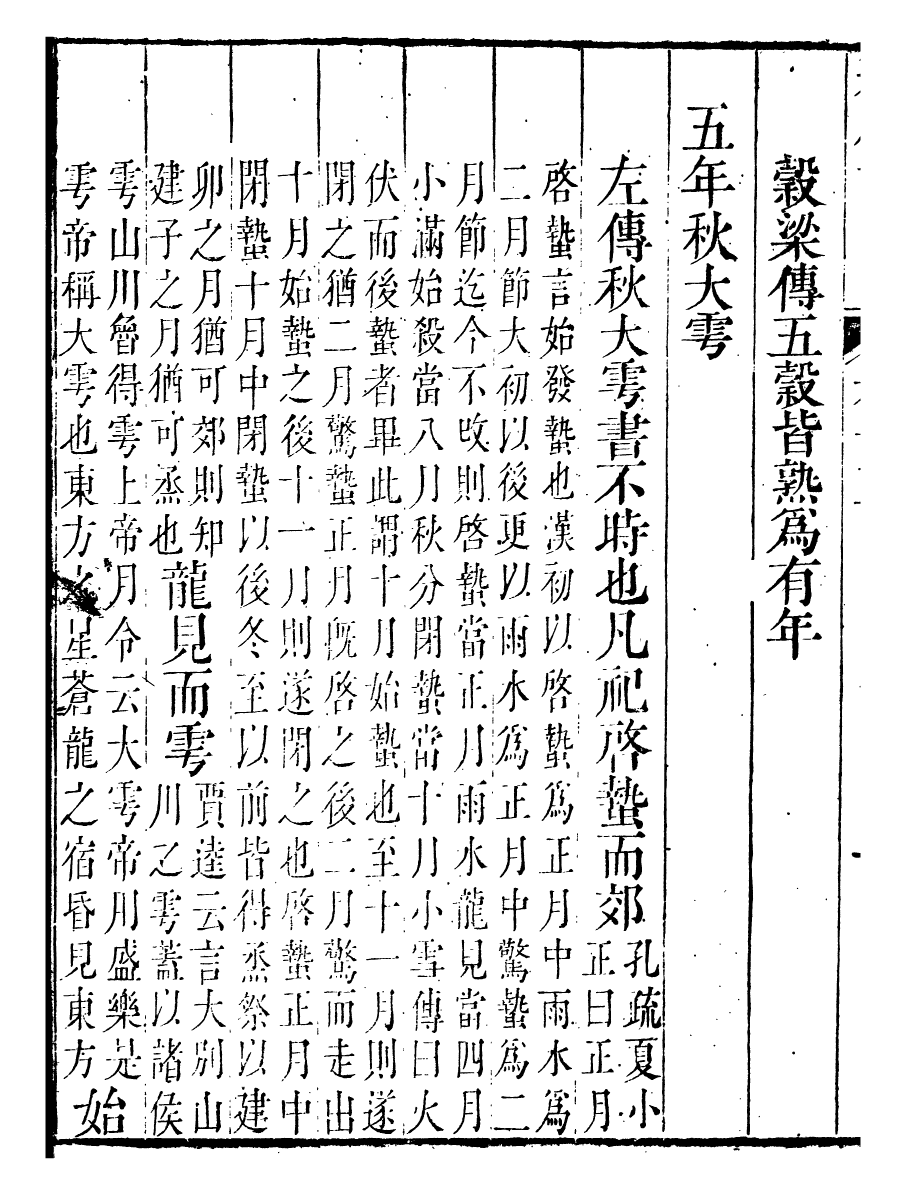 穀梁傳五穀皆熟爲有年
五年秋大雩
左傳秋大雩書不時也凡祀啓蟄而郊
孔疏夏小
正曰正月
啓蟄言始發蟄也漢初以啓蟄爲正月中雨水爲
二月節大初以後更以雨水爲正月中驚蟄爲二
月節迄今不改則啓蟄當正月雨水龍見當四月
小滿始殺當八月秋分閉蟄當十月小雪傳曰火
伏而後蟄者畢此謂十月始蟄也至十一月則遂
閉之猶二月驚蟄正月既啓之後二月驚而走出
十月始蟄之後十一月則遂閉之也啓蟄正月中
閉蟄十月中閉蟄以後冬至以前皆得烝祭以建
卯之月猶可郊則知
建子之月猶可烝也
龍見而雩
賈逵云言大別山
川之雩蓋以諸侯
雩山川魯得雩上帝月令云大雩帝用盛樂是
雩帝稱大雩也東方之星蒼龍之宿昏見東方
始